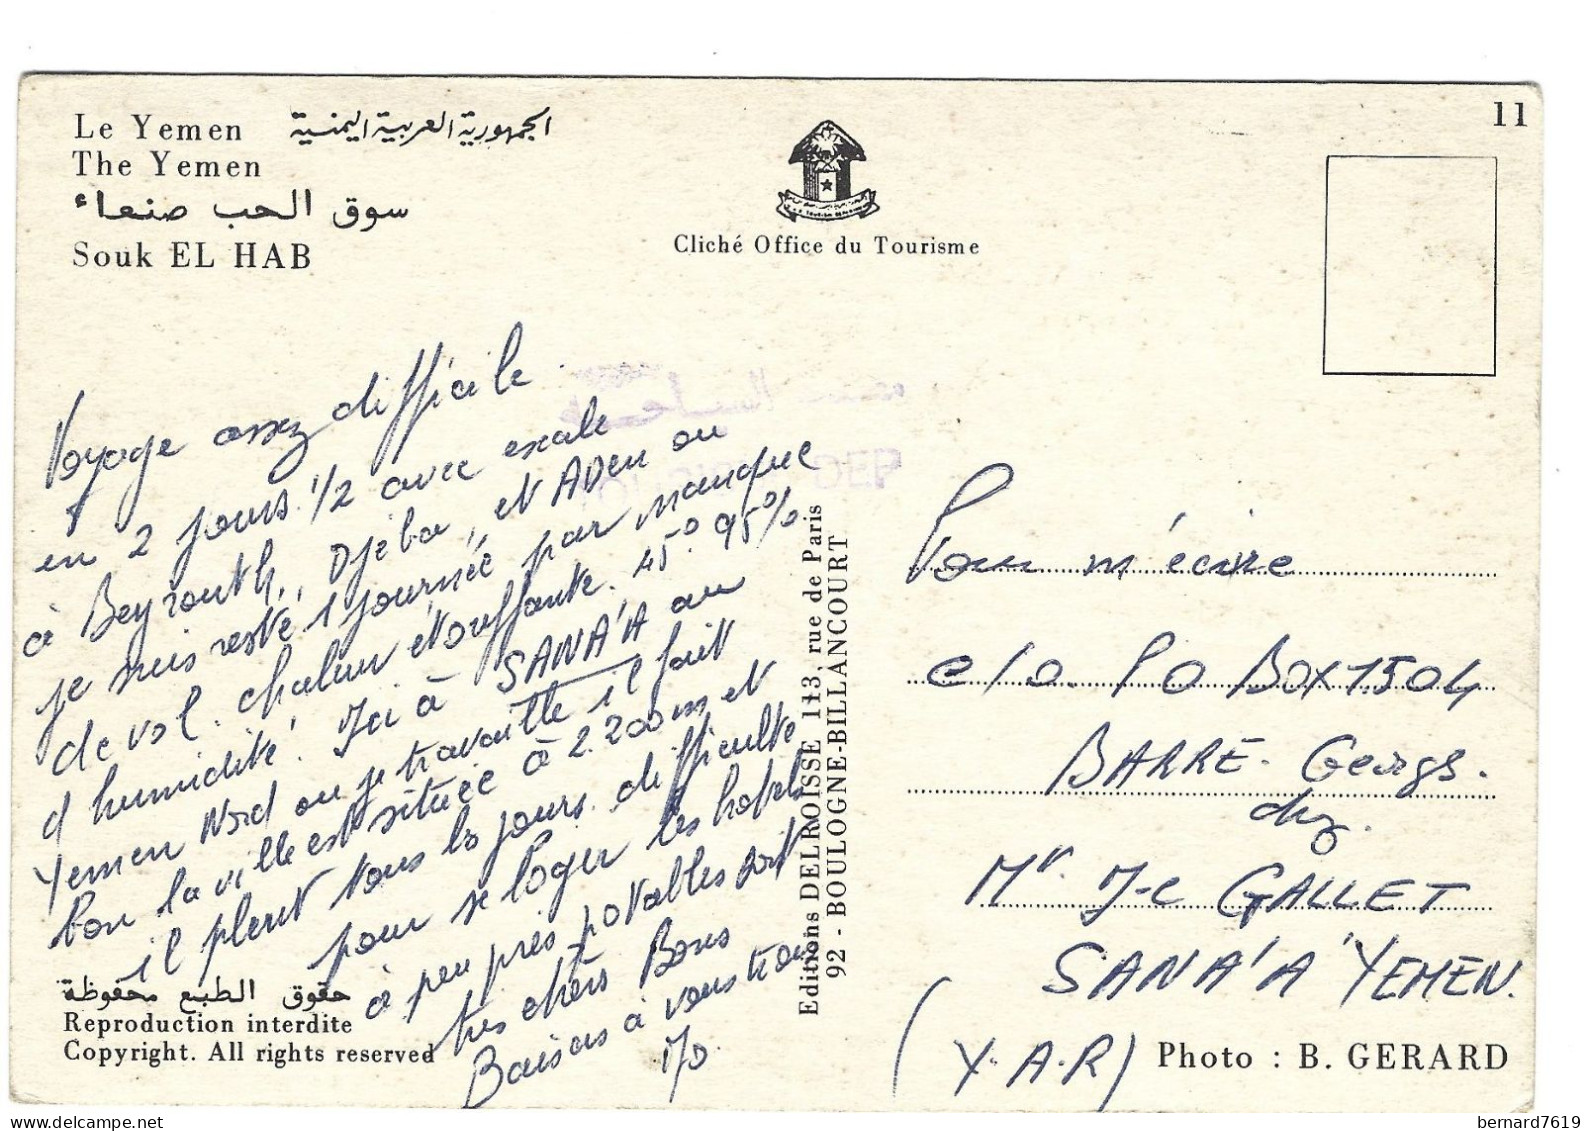 11
Le Yemen الجمهورية العربية اليمنية
The Yemen
سوق الحب صنعاء
Souk EL HAB
Cliché Office du Tourisme
Voyage assez difficile
en 2 jours 1/2 avec escale
à Beyrouth, Djibo, et ADEN ou
je suis resté 1 journée par manque
de vol. chaleur étouffante. 45° 95%
d'humidité. Ici à SANA'A au
Yemen Nord ou je travaille il fait
bon la ville est située à 2.200 m et
il pleut tous les jours. difficulté
pour se loger les hotels
à peu près potables sont
très chers Bons
Baisers à vous tous
JO
Editions DELROISSE 113, rue de Paris
92 - BOULOGNE-BILLANCOURT
DEP
Pour m'écrire
c/o. PO BOX 1504
BARRE. Georges.
chez.
Mr. J-C GALLET
SANA'A YEMEN.
(Y.A.R)
حقوق الطبع محفوظة
Reproduction interdite
Copyright. All rights reserved
Photo : B. GERARD
bernard7619